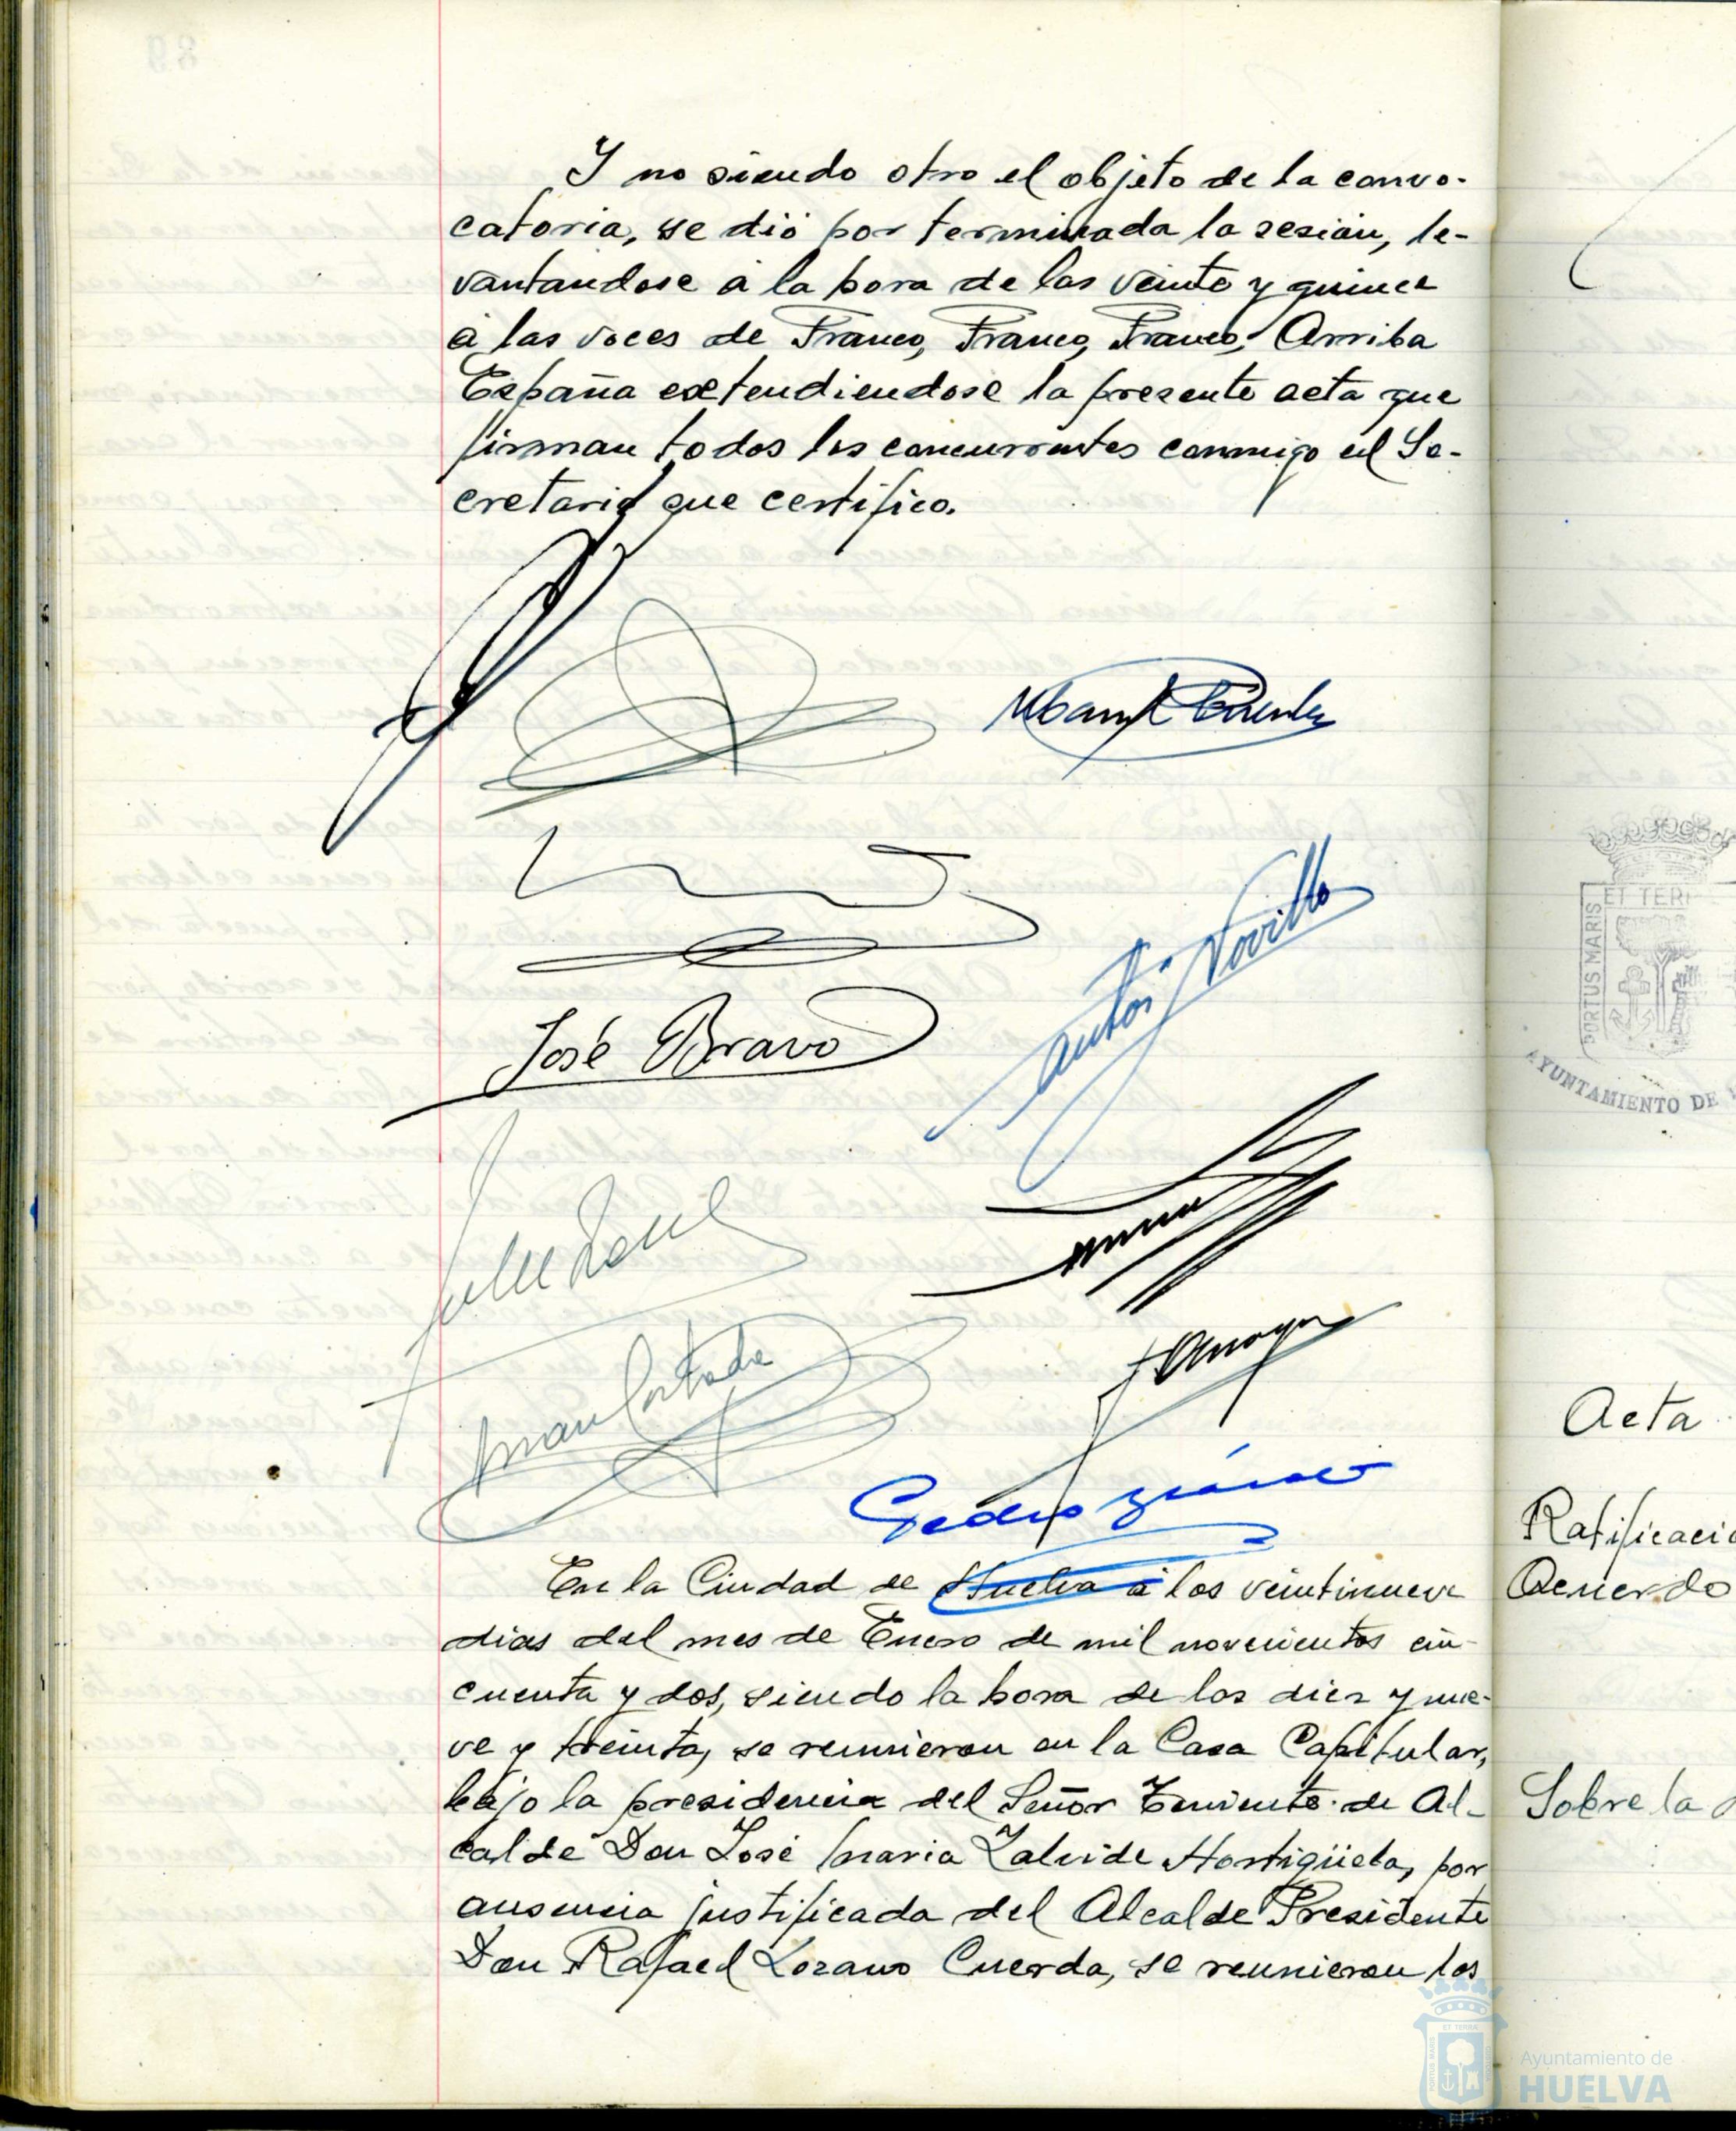 Y no siendo otro el objeto de la convo-
catoria, se dió por terminada la sesión, le-
vantandose a la hora de las veinte y quince
a las voces de Franco, Franco, Franco, Arriba
España extendiendose la presente acta que
firman todos los concurrentes conmigo el Se-
cretario que certifico.
José Bravo
Novillo
Juan Cortada
Pedro
En la Ciudad de Huelva a los veintinueve
dias del mes de Enero de mil novecientos cin-
cuenta y dos, siendo la hora de las diez y nue-
ve y treinta, se reunieron en la Casa Capitular,
bajo la presidencia del Señor Teniente de Al-
calde Don José Maria Zalvide Hortigüela, por
ausencia justificada del Alcalde Presidente
Don Rafael Lozano Cuerda, se reunieron los
PORTUS MARIS
ET TER
AYUNTAMIENTO DE
Acta
Ratificacio
Acuerdo
Sobre la
Ayuntamiento de
HUELVA